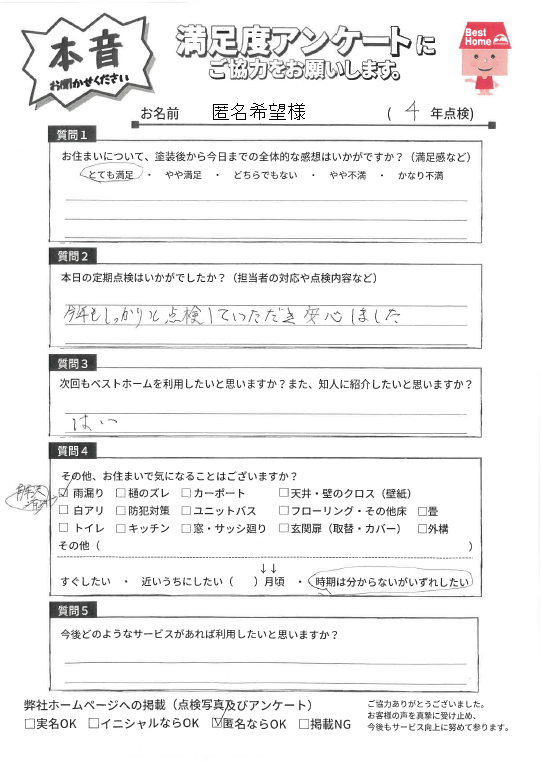 本音
お聞かせください
満足度アンケートに
ご協力をお願いします。
Best
Home
お名前 匿名希望様 ( 4 年点検)
質問1
お住まいについて、塗装後から今日までの全体的な感想はいかがですか？（満足感など）
とても満足 ・ やや満足 ・ どちらでもない ・ やや不満 ・ かなり不満
質問2
本日の定期点検はいかがでしたか？（担当者の対応や点検内容など）
今年もしっかりと点検していただき安心しました
質問3
次回もベストホームを利用したいと思いますか？また、知人に紹介したいと思いますか？
はい
質問4
その他、お住まいで気になることはございますか？
☑雨漏り □樋のズレ □カーポート □天井・壁のクロス（壁紙）
□白アリ □防犯対策 □ユニットバス □フローリング・その他床 □畳
□トイレ □キッチン □窓・サッシ廻り □玄関扉（取替・カバー） □外構
その他（ ）
↓↓
すぐしたい ・ 近いうちにしたい（ ）月頃 ・ 時期は分からないがいずれしたい
質問5
今後どのようなサービスがあれば利用したいと思いますか？
弊社ホームページへの掲載（点検写真及びアンケート）
□実名OK □イニシャルならOK ☑匿名ならOK □掲載NG
ご協力ありがとうございました。
お客様の声を真摯に受け止め、
今後もサービス向上に努めて参ります。